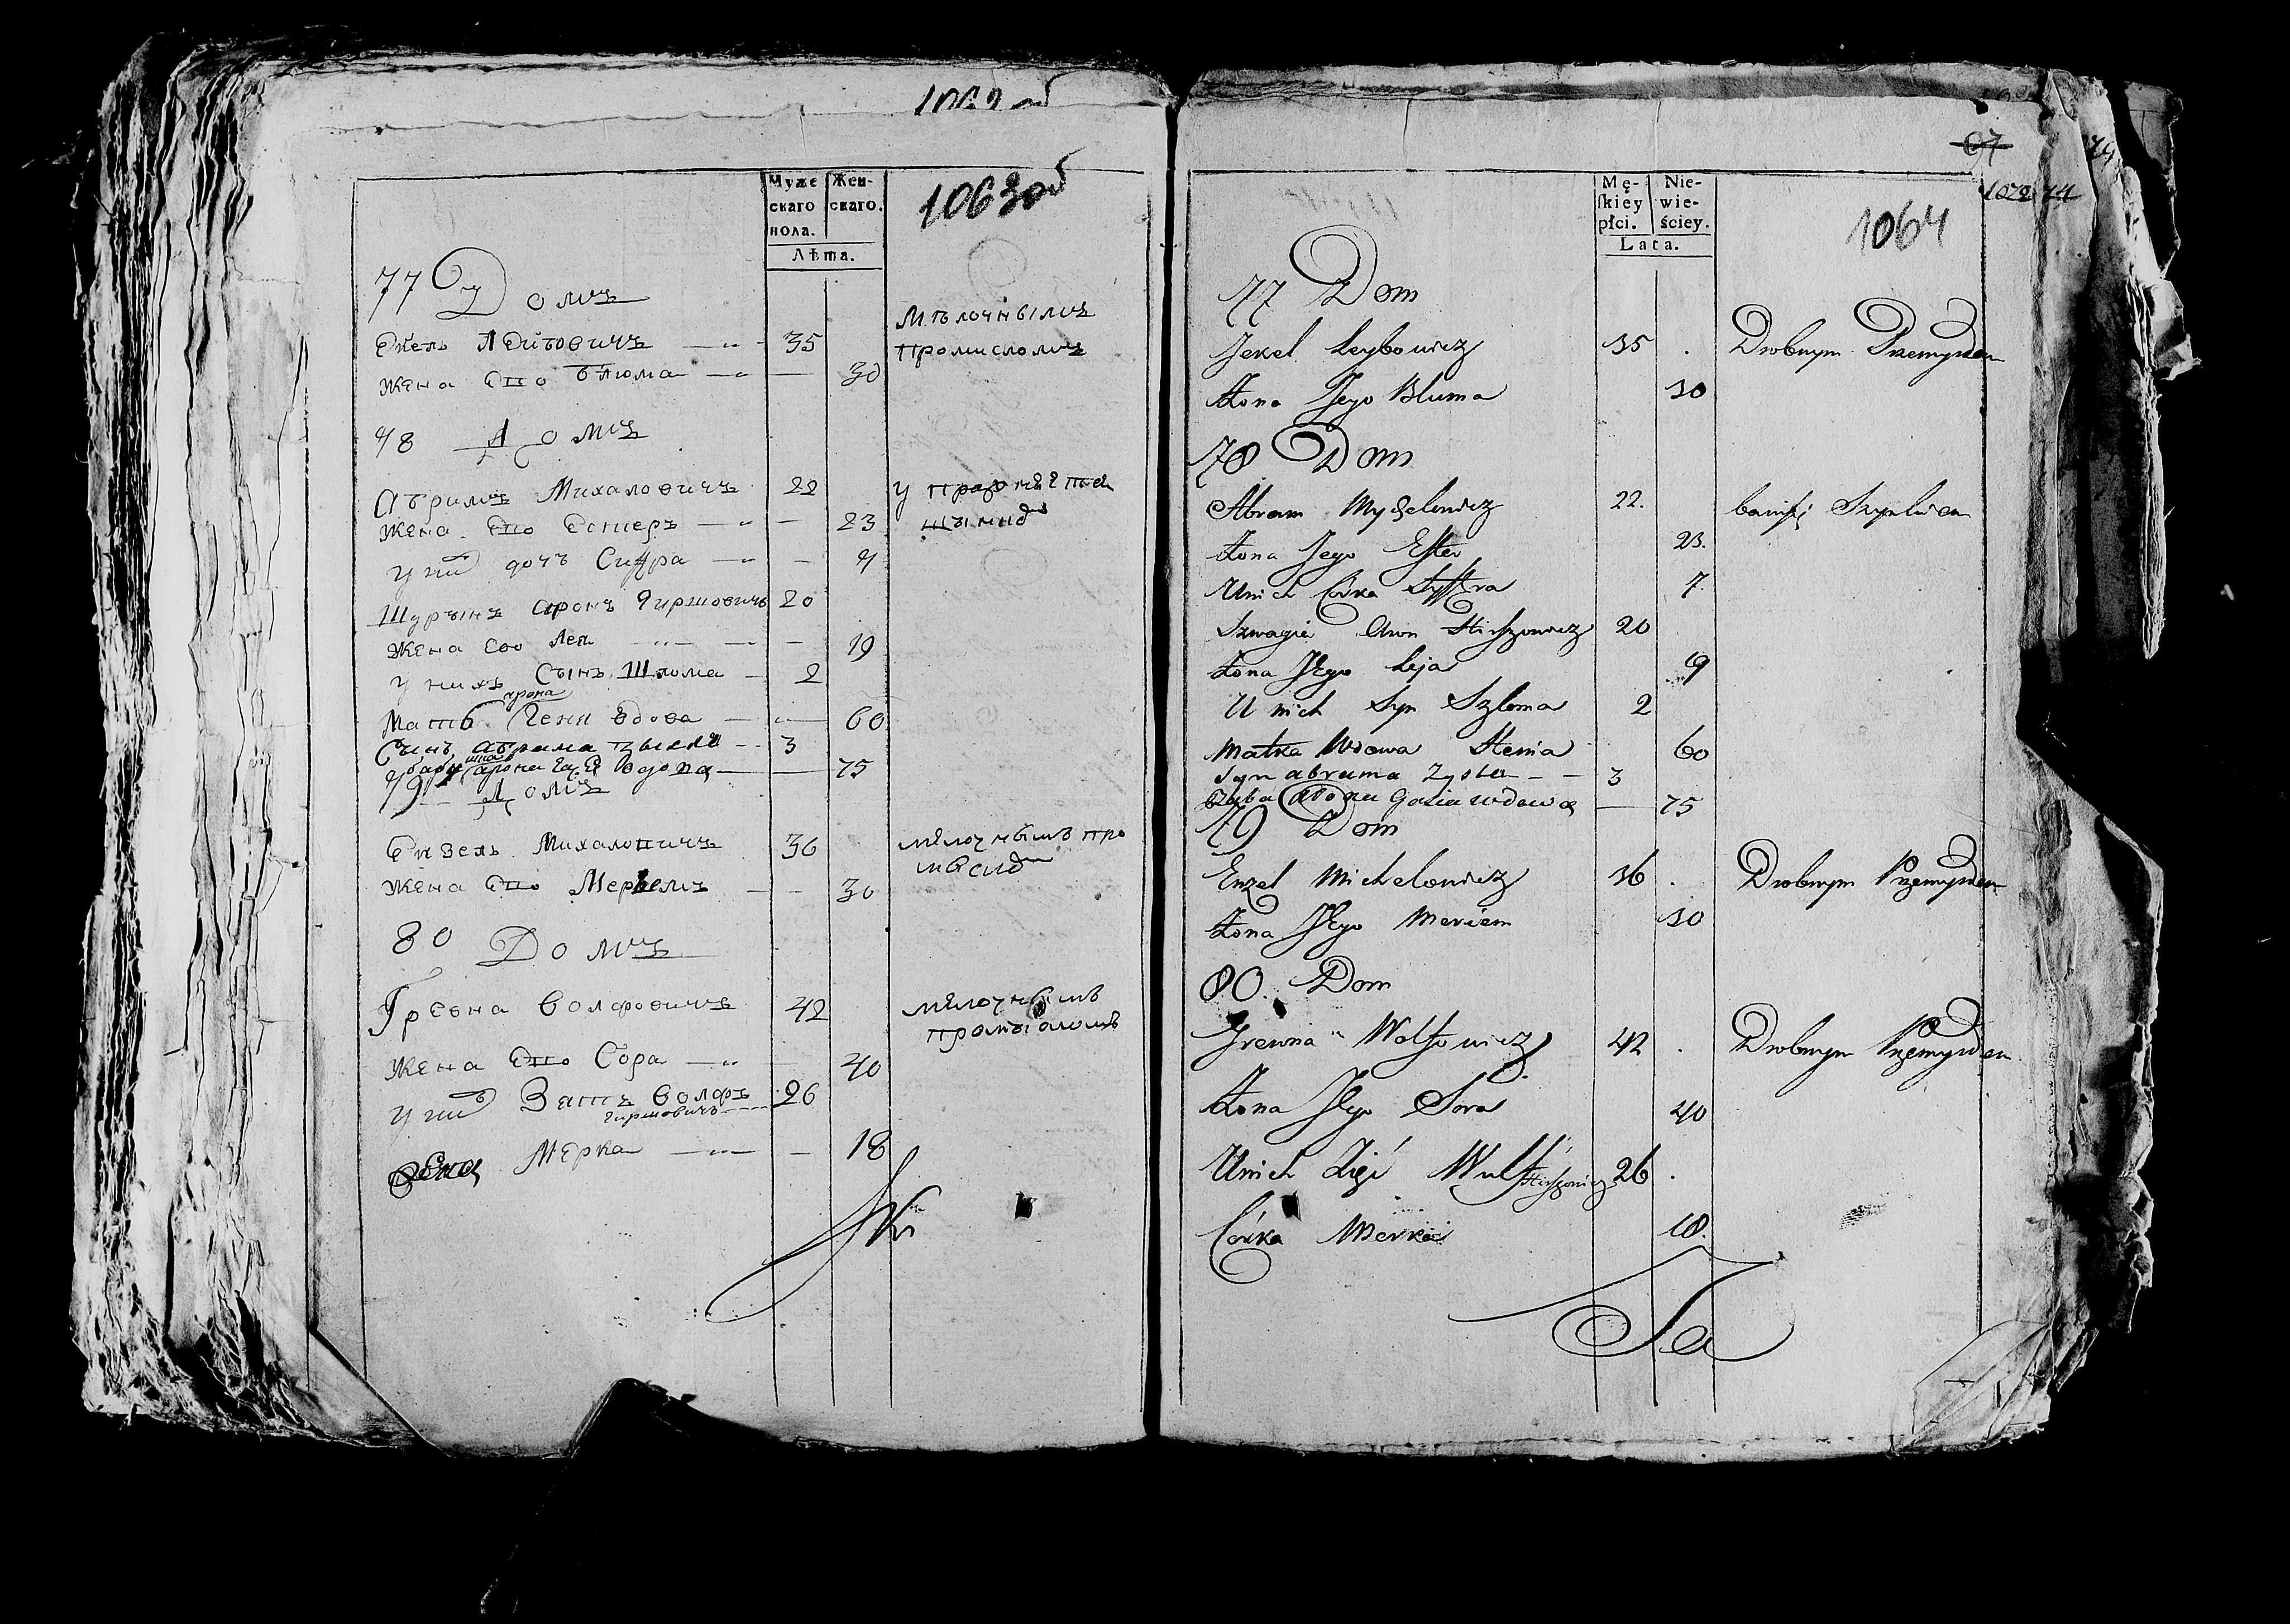 1063об
Муже
скаго
пола.
Жен-
скаго.
Лѣта.
77 Домъ
Екель Лейбовичъ 35
Мѣлочнымъ
промисломъ
Жена Его Блюма 30
78 Домъ
Абрамъ Михаловичъ 22
у
Жена Его Естеръ 23
у них дочъ Сифра 7
Шурынъ Аронъ Гиршовичъ 20
Жена Ево Лея 19
у нихъ Сынъ Шлома 2
Арона
Мать Гени вдова 60
Сынъ абрама 3
арона вдова 75
79 Домъ
Ензель Михаловичъ 36
мѣлочнымъ про
Жена Его Мерьемъ 30
80 Домъ
Гревна Волфовичъ 42
мѣлочнымъ
Жена Его Сора 40
у них Зять Волфъ 26
Гиршовичъ
Мерка 18
67
1064
Mę-
ſkiey
płci.
Nie-
wie-
ściey.
Lata.
77 Dom
Jekel Leybowicz 35 Drobnym Przemysłem
Żona Jego Bluma 30
78 Dom
Abram Mychelowicz 22.
Żona Jego Ester 23.
U nich Córka Syffra 7.
Szwagier Aron Hirszowicz 20
Żona Jego Leja 19
U nich Syn Szloma 2
Matka Wdowa Henia 60
Syn abrama Zysla 3
Baba arona Gasia wdowa 75
79 Dom
Enzel Michelowicz 36 Drobnym Przemysłem
Żona Jego Meriem 30
80. Dom
Grewna Wolfowicz 42 Drobnym Przemysłem
Żona Jego Sora 40
U nich Zięć Wulf Hirszowicz 26
Córka Merka 18.